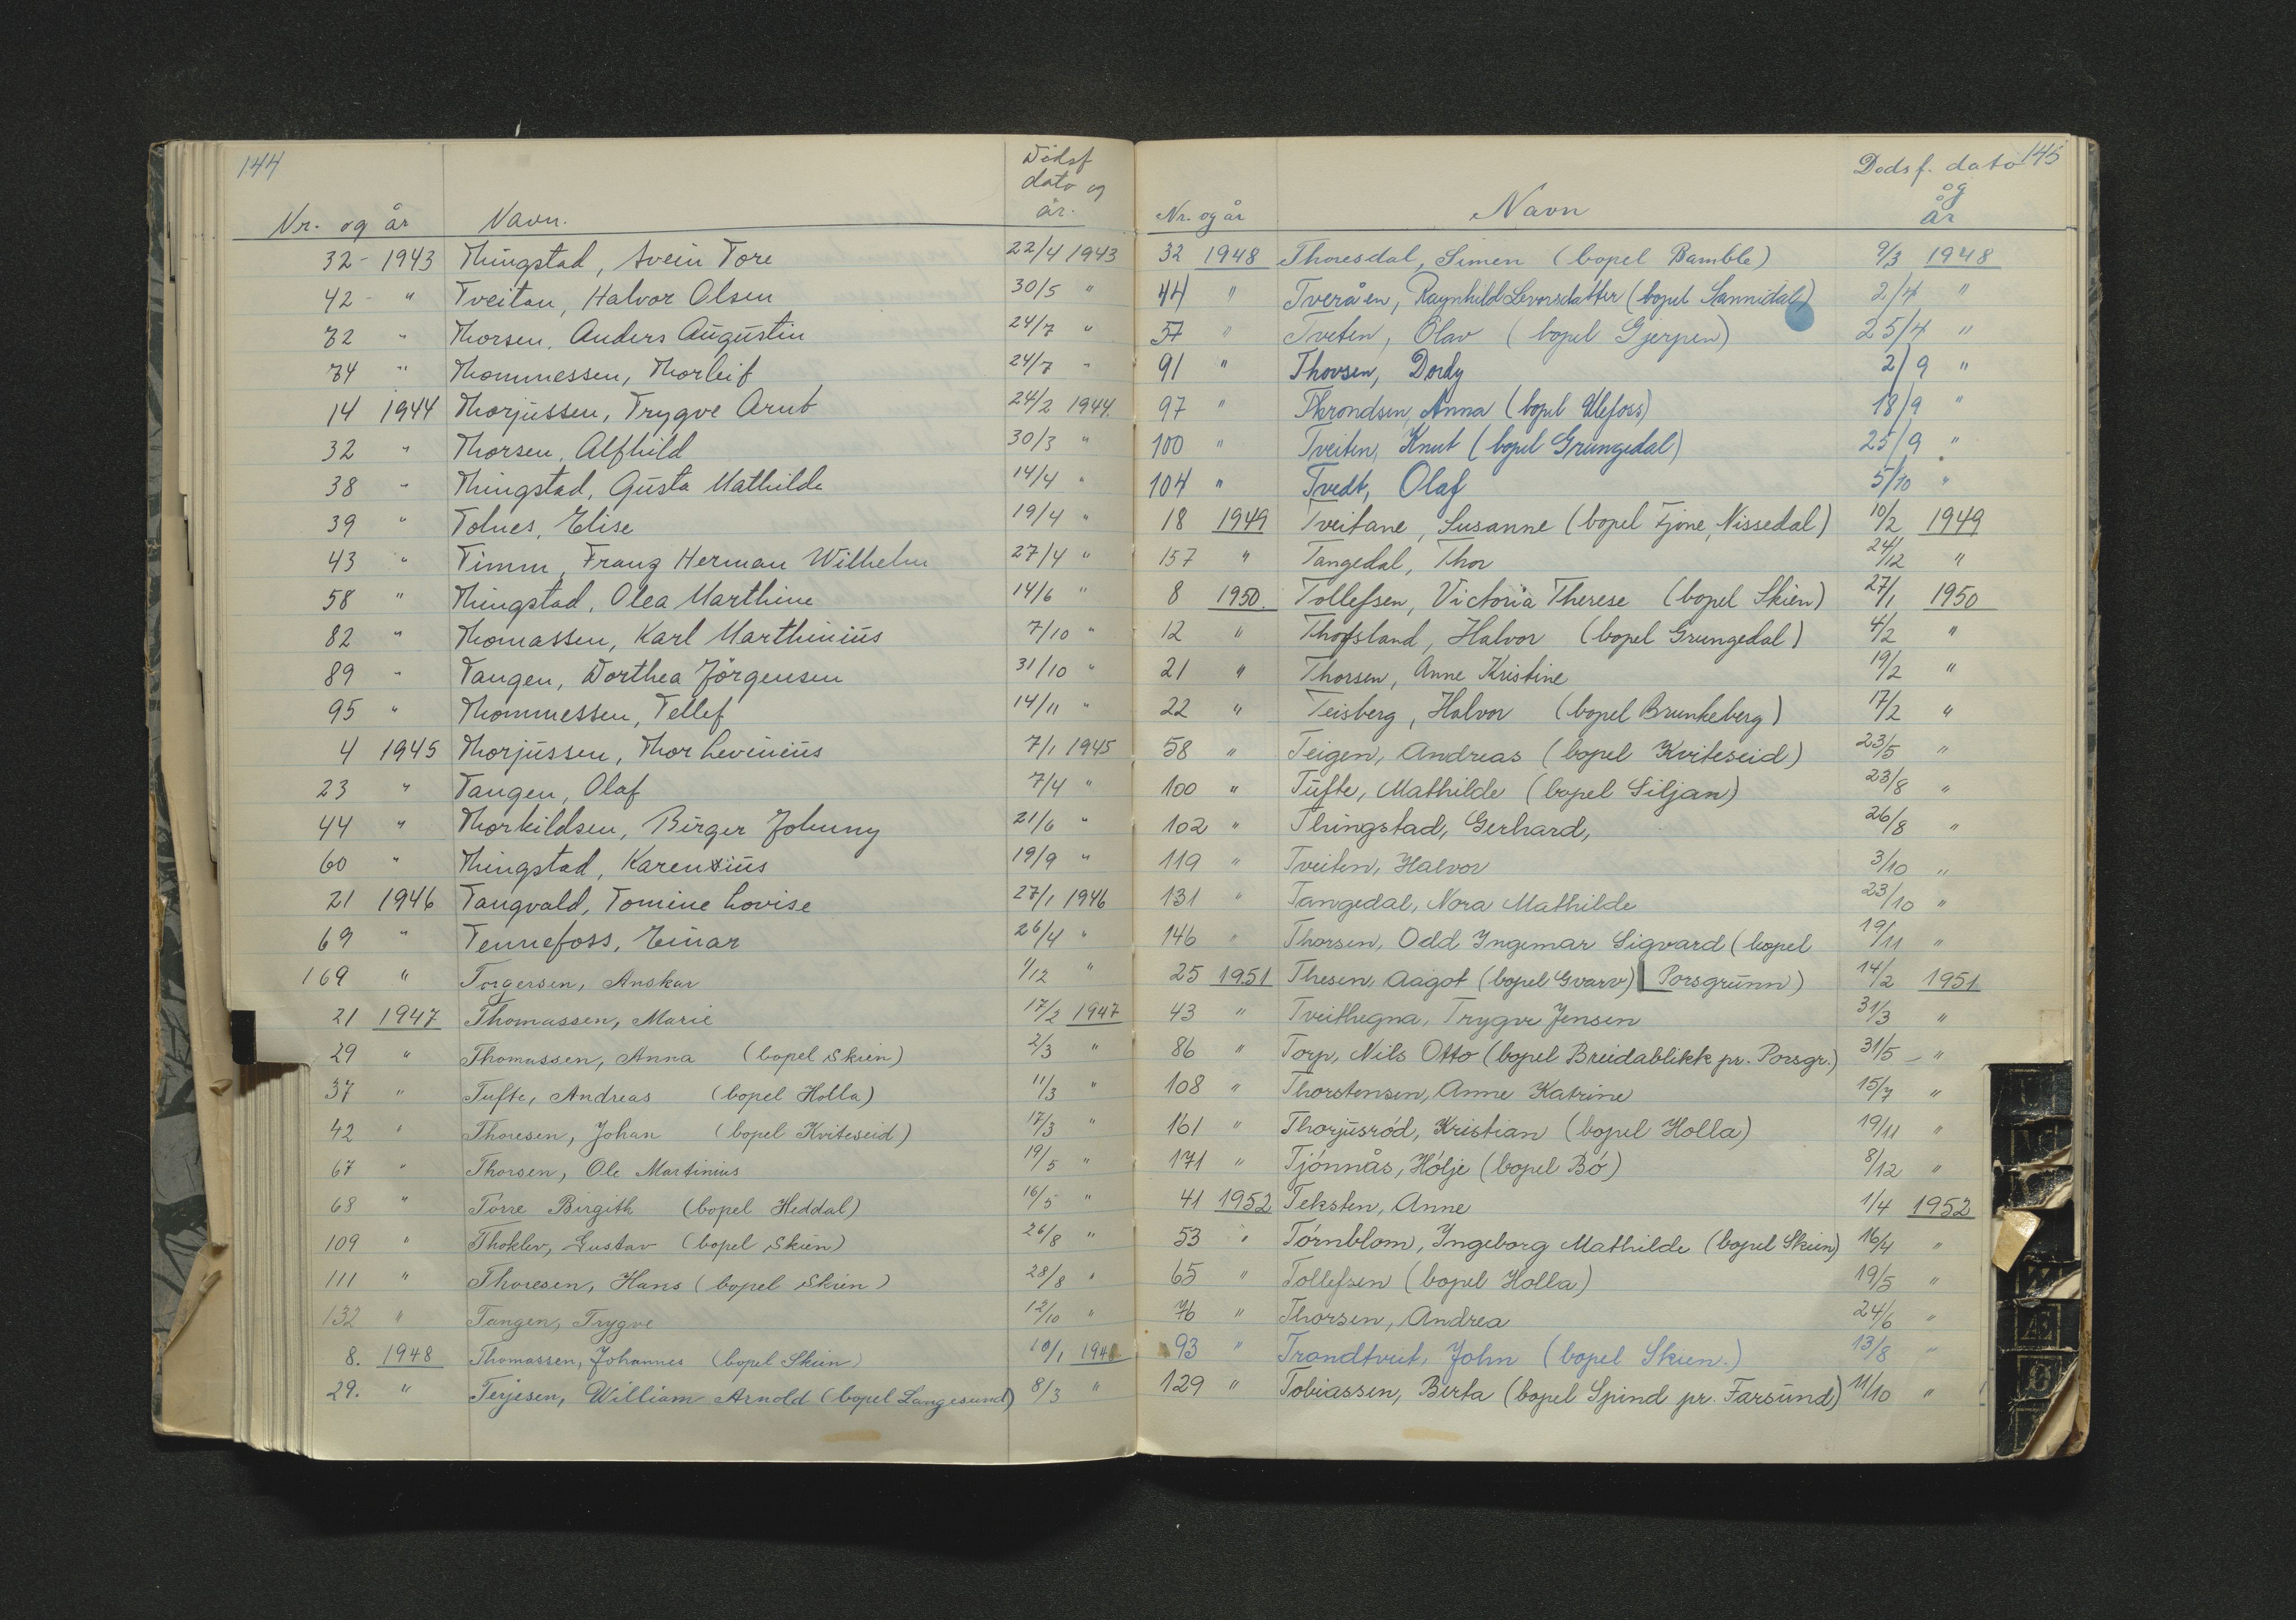 144
Dødsf
dato og
år.
Nr. og år Navn.
32 - 1943 Thingstad, Svein Tore 22/4 1943
42 - " Tveitan, Halvor Olsen 30/5 "
72 " Thorsen, Anders Augustin 24/7 "
74 " Thommessen, Thorleif 24/7 "
14 1944 Thorjussen, Trygve Arnt 24/2 1944.
32 " Thorsen, Alfhild 30/3 "
38 " Thingstad, Gusta Mathilde 14/4 "
39 " Tolnes, Elise 19/4 "
43 " Timm, Franz Herman Wilhelm 27/4 "
58 " Thingstad, Olea Marthine 14/6 "
82 " Thomassen, Karl Marthinius 7/10 "
89 " Tangen, Dorthea Jørgensen 31/10 "
95 " Thommessen, Tellef 14/11 "
4 1945 Thorjussen, Thor Levinius 7/1 1945
23 " Tangen, Olaf 7/4 "
44 " Thorkildsen, Birger Johnny 21/6 "
60 " Thingstad, Karenius 19/9 "
21 1946 Tangvald, Tomine Lovise 27/1 1946
69 " Tennefoss, Einar 26/4 "
169 " Torgersen, Anskar 1/12 "
21 1947 Thomassen, Marie 17/2 1947
29 " Thomassen, Anna (bopel Skien) 2/3 "
37 " Tufte, Andreas (bopel Holla) 11/3 "
42 " Thoresen, Johan (bopel Kviteseid) 17/3 "
67 " Thorsen, Ole Martinius 19/5 "
68 " Torre Birgith (bopel Heddal) 16/5 "
109 " Thoklev, Gustav (bopel Skien) 26/8 "
111 " Thoresen, Hans (bopel Skien) 28/8 "
132 " Tangen, Trygve 12/10 "
8. 1948 Thomassen, Johannes (bopel Skien) 10/1 1948
29. " Terjesen, William Arnold (bopel Langesund) 8/3 "
145
Dødsf. dato
og
år
Nr. og år Navn
32 1948 Thoresdal, Simen (bopel Bamble) 9/3 1948
44 " Tveråen, Ragnhild Levorsdatter (bopel Sannidal) 2/4 "
57 " Tveten, Olav (bopel Gjerpen) 25/4 "
91 " Thovsen, Dordy 2/9 "
97 " Throndsen, Anna (bopel Ulefoss) 18/9 "
100 " Tveiten, Knut (bopel Grungedal) 25/9 "
104 " Tvedt, Olaf 5/10 "
18 1949 Tveitane, Susanne (bopel Fjone, Nissedal) 10/2 1949
157 " Tangedal, Thor 24/12 "
8 1950. Tollefsen, Victoria Therese (bopel Skien) 27/1 1950
12 " Thofsland, Halvor (bopel Grungedal) 4/2 "
21 " Thorsen, Anne Kristine 19/2 "
22 " Teisberg, Halvor (bopel Brunkeberg) 17/2 "
58 " Teigen, Andreas (bopel Kviteseid) 23/5 "
100 " Tufte, Mathilde (bopel Siljan) 23/8 "
102 " Thingstad, Gerhard, 26/8 "
119 " Tveiten, Halvor 3/10 "
131 " Tangedal, Nora Mathilde 23/10 "
146 " Thorsen, Odd Ingemar Sigvard (bopel 19/11 "
25 1951 Thesen, Aagot (bopel Gvarv) Porsgrunn) 14/2 1951
43 " Tveithegna, Trygve Jensen 31/3 "
86 " Torp, Nils Otto (bopel Breidablikk pr. Porsgr.) 31/5 "
108 " Thorstensen, Anne Katrine 15/7 "
161 " Thorjusrød, Kristian (bopel Holla) 19/11 "
171 " Tjønnås, Hølje (bopel Bø) 8/12 "
41 1952 Teksten, Anne 1/4 1952
53 " Tørnblom, Ingeborg Mathilde (bopel Skien) 16/4 "
65 " Tollefsen (bopel Holla) 19/5 "
76 " Thorsen, Andrea 24/6 "
93 " Trondtveit, John (bopel Skien.) 13/8 "
129 " Tobiassen, Berta (bopel Spind pr. Farsund) 11/10 "
Æ
Ø